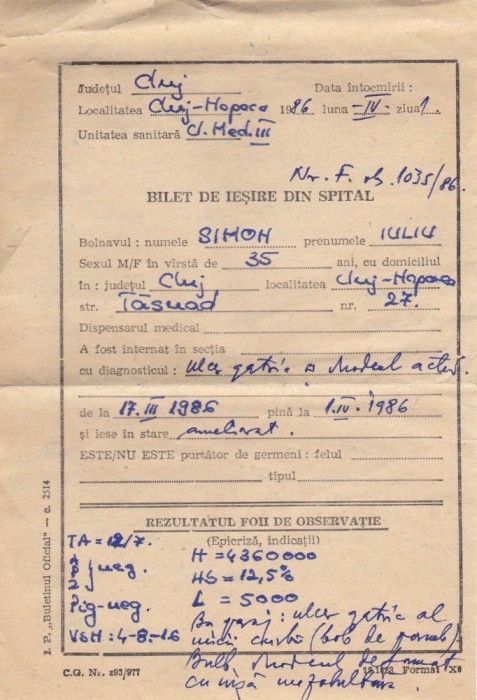 Județul Cluj Data întocmirii :
Localitatea Cluj-Napoca 1986 luna -IV- ziua 1.
Unitatea sanitară Cl. Med. III
Nr. F. ob. 1035/86.
BILET DE IEȘIRE DIN SPITAL
Bolnavul : numele SIMON prenumele IULIU
Sexul M/F în vîrstă de 35 ani, cu domiciliul
în : județul Cluj, localitatea Cluj-Napoca
str. Tăsnad nr. 27.
Dispensarul medical
A fost internat în secția
cu diagnosticul : ulcer gastric duodenal activ.
de la 17. III 1986 pînă la 1. IV. 1986
și iese în stare ameliorat.
ESTE/NU ESTE purtător de germeni : felul
tipul
REZULTATUL FOII DE OBSERVAȚIE
(Epicriză, indicații)
TA = 12/7. H = 4360000
A
P neg. HB = 12,5%
Z
Pig-neg. L = 5000
VSH : 4-8-16 Ba pasaj : ulcer gastric al
micii curburi (bob de porumb)
Bulb duodenal deformat
cu nișă
I. P. „Buletinul Oficial" — c. 2514
C.G. Nr. 293/977 Format